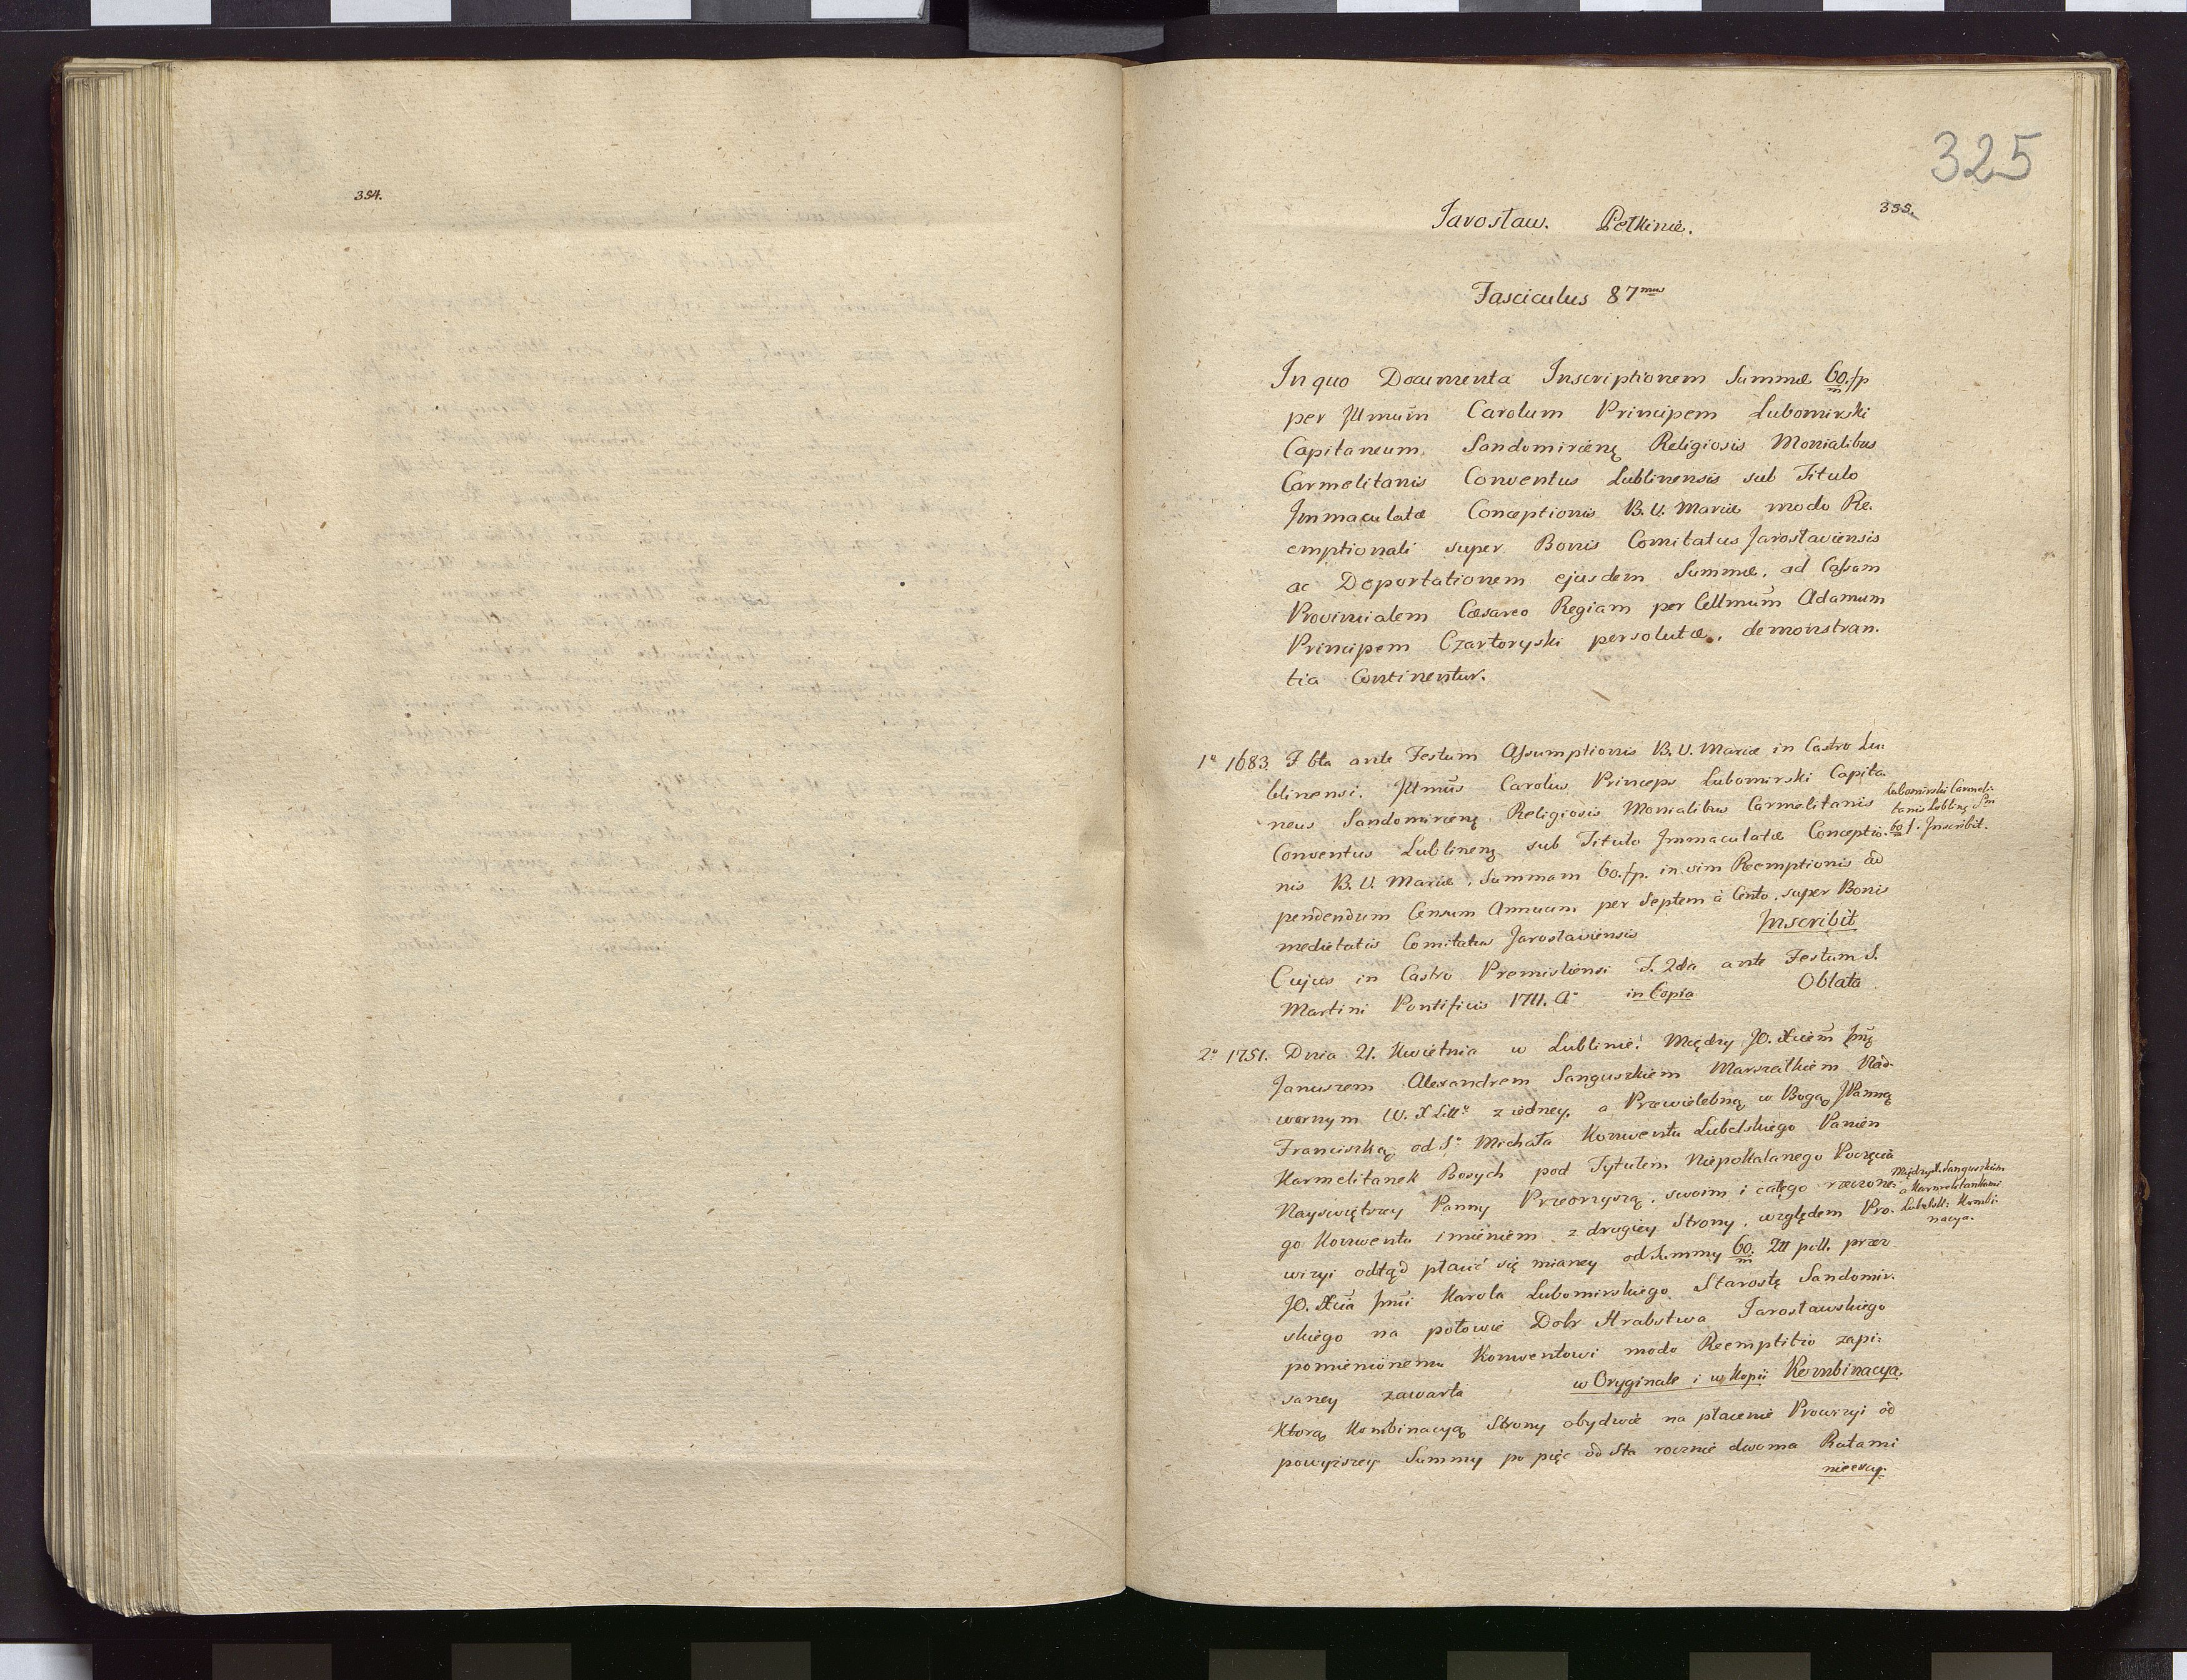 354.
325
355.
Jarosław. Pełkinie.
Fasciculus 87mus
In quo Documenta Inscriptionem Summæ 60/m. fp
per Illmum Carolum Principem Lubomirski
Capitaneum Sandomirienę Religiosis Monialibus
Carmelitanis Conventus Lublinensis sub Titulo
Immaculatæ Conceptionis B. V. Mariæ modo Re-
emptionali super Bonis Comitatus Jarosłaviensis
ac Deportationem ejusdem Summæ, ad Cassam
Provincialem Cæsareo Regiam per Cellmum Adamum
Principem Czartoryski persolutæ, demonstran-
tia Continentur.
1o 1683. F. 6ta ante Festum Assumptionis B. V. Mariæ in Castro Lu-
blinensi. Illmus Carolus Princeps Lubomirski Capita-
neus Sandomirienę Religiosis Monialibus Carmelitanis
Conventus Lublinenę sub Titulo Immaculatæ Conceptio-
nis B. V. Mariæ, Summam 60. fp. in vim Reemptionis ad
pendendum Censum Annuum per Septem à Cento, super Bonis
medietatis Comitatus Jarosłaviensis Inscribit
Lubomirski Carmeli-
tanis Lublinę Sm
60/m f. Inscribit.
Cujus in Castro Premisliensi F. 2da ante Festum S.
Martini Pontificis 1711. Ao in Copia Oblata
2o 1751. Dnia 21. Kwietnia w Lublinie. Między JO. Xciem Jmę
Januszem Alexandrem Sanguszkiem Marszałkiem Nad-
wornym W. X Litto z iedney, a Przewielebną w Bogą JPanną
Franciszką od So Michała Konwentu Lubelskiego Panien
Karmelitanek Bosych pod Tytułem Niepokalanego Poczęcia
Nayświętszey Panny Przeoryszą, swoim i całego rzeczone-
go Konwentu imieniem z drugiey Strony, względem Pro-
wizyi odtąd płacić się mianey od Summy 60/m. Zll poll. przez
JO. Xcia Jmci Karola Lubomirskiego Starostę Sandomir-
skiego na połowie Dóbr Hrabstwa Jarosławskiego
pomienionemu Konwentowi modo Reemptitio zapi-
saney zawarta w Oryginale i w Kopii Kombinacya.
Między X. Sanguszkiem
a Karmelitankami
Lubelsk: Kombi-
nacya.
Którą Kombinacyą Strony obydwie na płacenie Prowizyi od
powyższey Summy po pięć od Sta rocznie dwoma Ratami